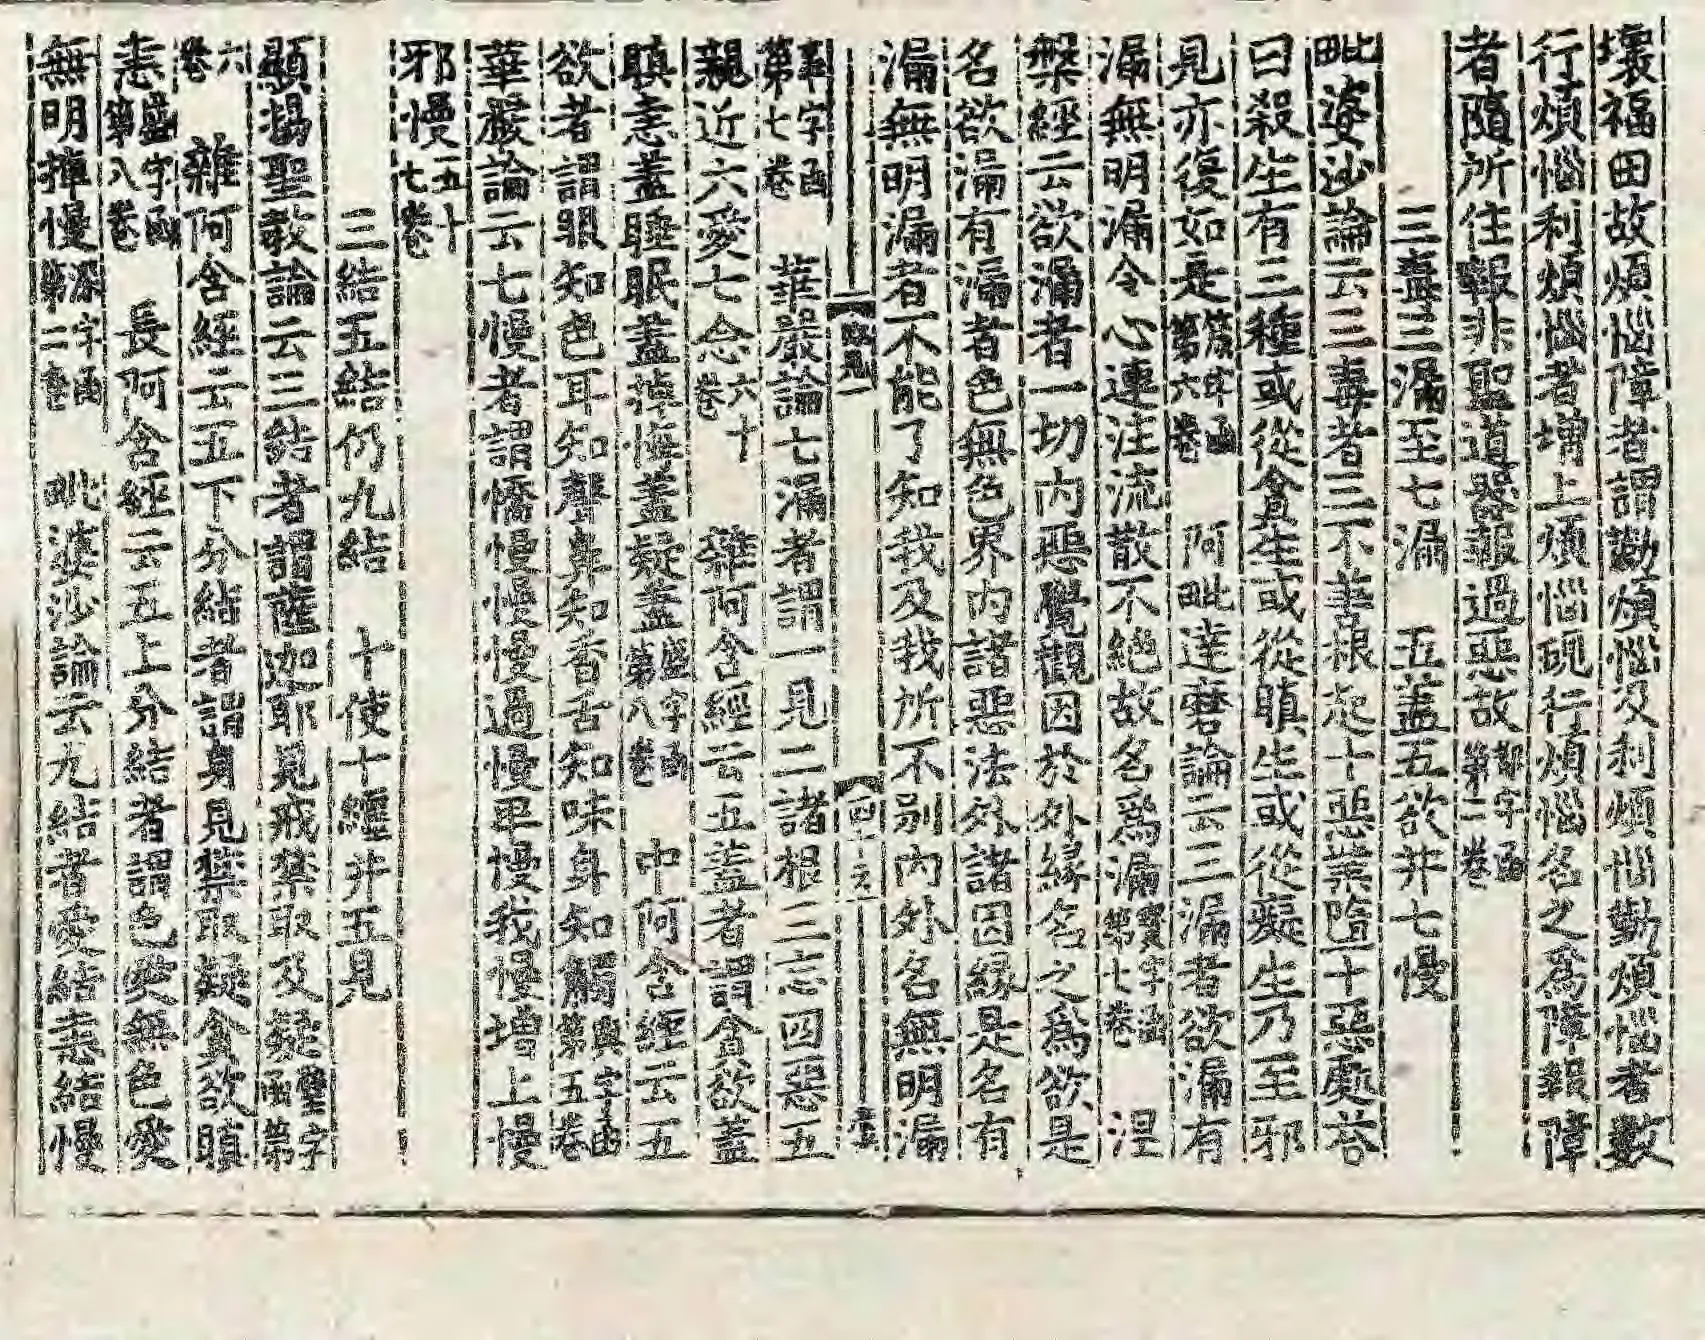 壞福田故煩惱障者謂勤煩惱及利煩惱勤煩惱者數
行煩惱利煩惱者增上煩惱現行煩惱名之為障報障
者隨所住報非聖道器報過惡故第二卷
三毒三漏至七漏　五蓋五欲并七慢
毗婆沙論云三毒者三不善根起十惡業墮十惡處答
曰殺生有三種或從貪生或從瞋生或從癡生乃至邪
見亦復如是第六卷　阿毗達磨論云三漏者欲漏有
漏無明漏令心連注流散不絕故名為漏寶字函第七卷　涅
槃經云欲漏者一切內惡覺觀因於外緣名之為欲是
名欲漏有漏者色無色界內諸惡法外諸因緣是名有
漏無明漏者不能了知我及我所不別內外名無明漏
第七卷　華嚴論七漏者謂一見二諸根三忘四惡五
親近六愛七念六十卷　雜阿含經云五蓋者謂貪欲蓋
瞋恚蓋睡眠蓋掉悔蓋疑蓋盛字函第八卷　中阿含經云五
欲者謂眼知色耳知聲鼻知香舌知味身知觸與字函第五卷
華嚴論云七慢者謂憍慢慢慢過慢卑慢我慢增上慢
邪慢五十七卷
三結五結仍九結　十使十纏并五見
顯揚聖教論云三結者謂薩迦耶見戒禁取及疑璧字函第
六卷　雜阿含經云五下分結者謂身見禁取疑貪欲瞋
恚盛字函第八卷　長阿含經云五上分結者謂色愛無色愛
無明掉慢深字函第二卷　毗婆沙論云九結者愛結恚結慢